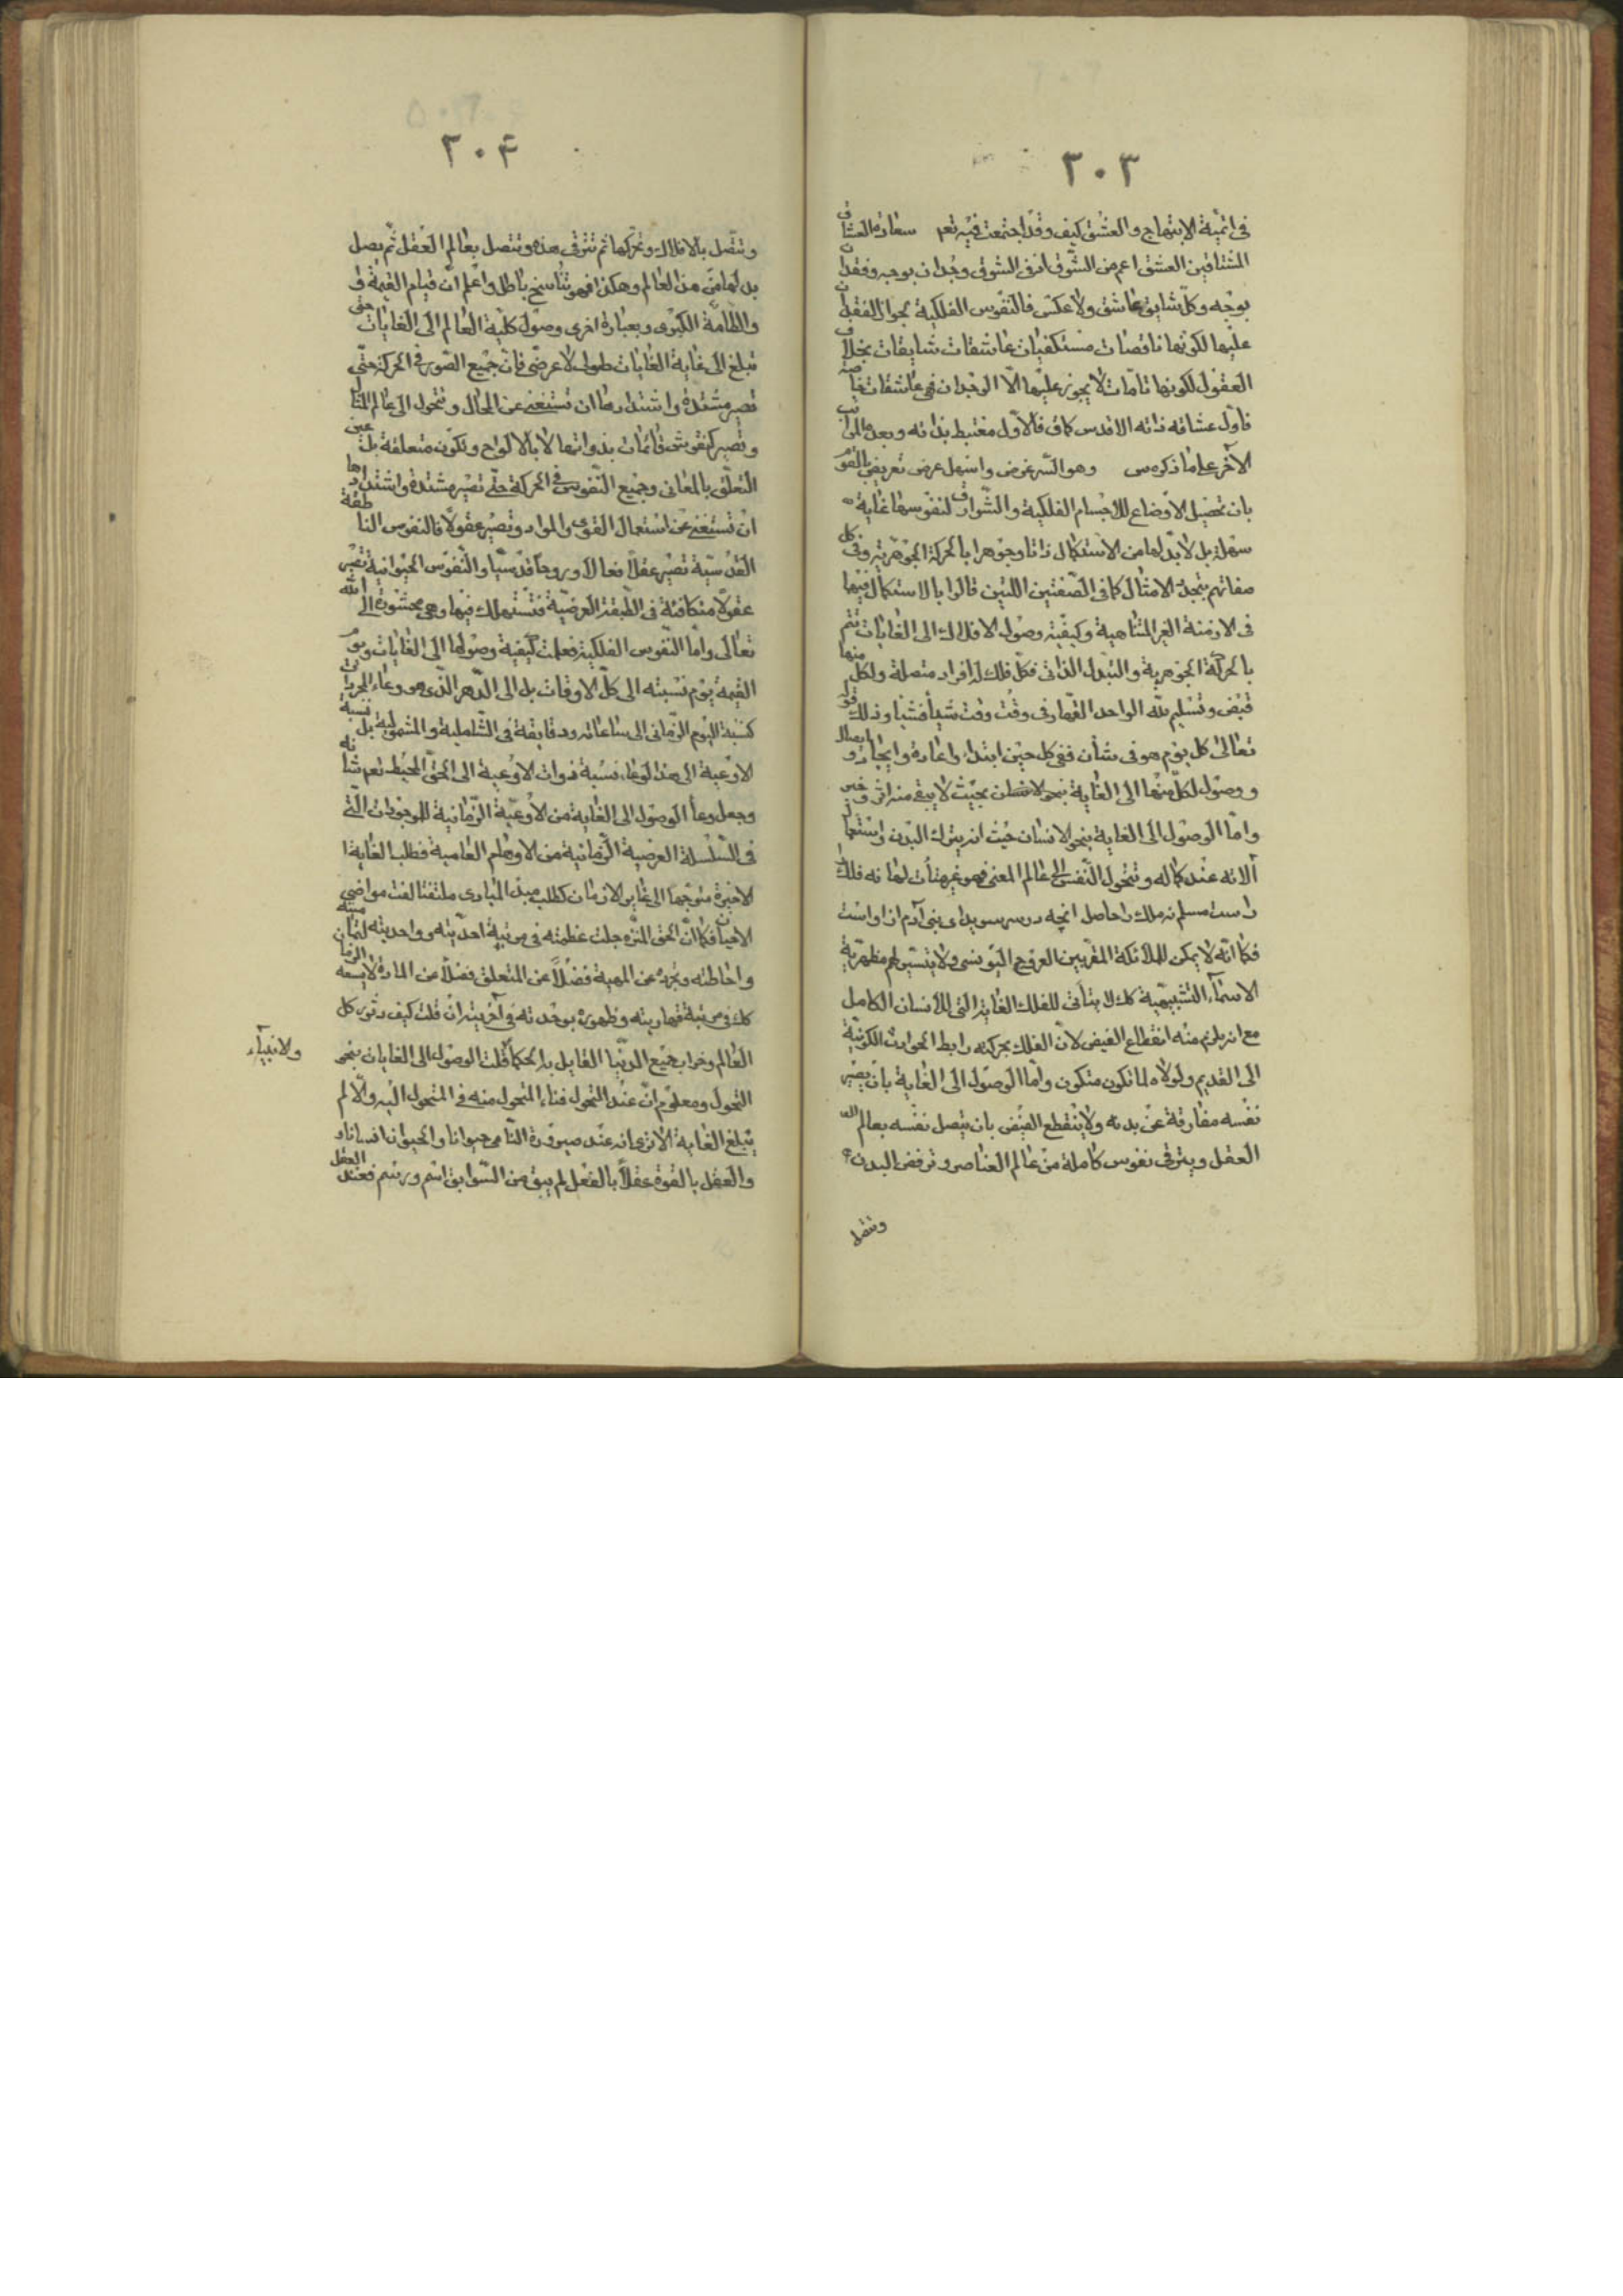 ٣٠٣
في اتمية الابتهاج والعشق كيف وقد اجتمعت فيه نعم سعادة العشاق
المشتاقين العشق اعم من الشوق اذ في الشوق وجدان بوجه وفقدان
بوجه وكل شايق عاشق ولا عكس فالنفوس الفلكية بجواز الفقدان
عليها لكونها ناقصات مستكفيات عاشقات شايقات بخلاف
العقول لكونها تامات لا يجوز عليها الا الوجدان فهي عاشقات خاصة
فاول عشاقه ذاته الاقدس كان فالاول مغتبط بذاته وبعده المراتب
الآخر على ما ذكروه وهو السر غرض واسهل عرض تعريض بالقوم
بان تحصيل الاوضاع للاجسام الفلكية والشوارق لنفوسها غاية
سهلة بل لا بد لها من الاستكمال ذاتا وجوهرا بالحركة الجوهرية وفي كل
صفاتهم بتجدد الامثال كما في الصفتين اللتين قالوا بالاستكمال فيهما
في الازمنة الغير المتناهية وكيفية وصول الافلاك الى الغايات تتم
بالحركة الجوهرية والتبدل الذاتي فكل فلك له افراد متصلة ولكل منها
قبض وتسليم لله الواحد القهار في وقت وقت شيأ فشيأ وذلك قوله
تعالى كل يوم هو في شأن ففي كل حين ابتداء واعادة وايجاد وايصال
ووصول لكل منها الى الغاية بنحو لا بحيث لا يبقى منه اثر وخبر
واما الوصول الى الغاية بنحو الانسان حيث انه يترك البدن واستعمال
آلاته عند كماله وتتحول النفس الى عالم المعنى فهو غير متأت لها نه فلك
راست مسلم نه ملك را حاصل انچه در سر سويداى بنى آدم از اوست
فكما انه لا يمكن للملائكة المقربين العروج اليونسي ولا يتيسر لهم مظهرية
الاسماء التشبيهية كك لا يتأتى للفلك الغاية التي للانسان الكامل
مع انه يلزم منه انقطاع الفيض لان الفلك بحركته رابط الحوادث الكونية
الى القديم ولولاه لما تكون متكون واما الوصول الى الغاية بان يصير
نفسه مفارقة عن بدنه ولا ينقطع الفيض بان يتصل نفسه بعالم
العقل ويترقى نفوس كاملة من عالم العناصر وترفض البدن
وتتصل
٣٠۴
وتتصل بالافلاك وتحركها ثم تترقى هذه وتتصل بعالم العقل ثم يصل
بدلها من هذا العالم وهكذا فهو تناسخ باطل واعلم ان قيام القيمة
والطامة الكبرى وبعبارة اخرى وصول كلية العالم الى الغايات حتى
تبلغ الى غاية الغايات طولى لا عرضى فان جميع الصور في الحركة حتى
تصير مشتدة واشتدادها ان تستغنى عن المحال وتتحول الى عالم المثال
وتصير كنقوش قائمات بذواتها لا بالالواح وتكون متعلقة بل عين
التعلق بالمعانى وجميع النفوس في الحركة حتى تصير مشتدة واشتدادها
ان تستغنى عن استعمال القوى والمواد وتصير عقولا فالنفوس الناطقة
القدسية تصير عقلا فعالا وروحا قدسيا والنفوس الحيوانية تصير
عقولا متكافئة في الطبقة العرضية فتستهلك فيها وهي محشورة الى الله
تعالى واما النفوس الفلكية فعلمت كيفية وصولها الى الغايات ويوم
القيمة يوم نسبته الى كل الاوقات بل الى الدهر الذى هو وعاء المجردات
كنسبة اليوم الزمانى الى ساعاته ودقايقة في الشاملية والمشمولية بل نسبة
الاوعية الى هذا الوعاء نسبة ذوات الاوعية الى الحق المحيط نعم شانه
وجعل وعاء الوصول الى الغاية من الاوعية الزمانية للموجودات التي
في السلسلة العرضية الزمانية من الاوهام العامية فطلب الغاية
الاخيرة متوجها الى غابر الازمان كطلب مبدء المبادى ملتفتا لفت مواضى
الاحيان فكما ان الحق المنزه جلت عظمته في مرتبة احديته وواحديته لتماميته
واحاطته وتجرده عن المهية فضلا عن المتعلق فضلا عن المادة لا يسعه الزمان
كك في مرتبة قهاريته وظهوره بوحدته في آخريته ان قلت كيف دثور كل
العالم وخراب جميع الدنيا القايل به الحكماء قلت الوصول الى الغايات بنحو
والانبياء
التحول ومعلوم ان عند التحول فناء المتحول منه في المتحول اليه والا لم
يبلغ الغاية الا ترى انه عند صيرورة النامى حيوانا والحيوان انسانا
والعقل بالقوة عقلا بالفعل لم يبق من السوابق اسم ورسم فعند العقل